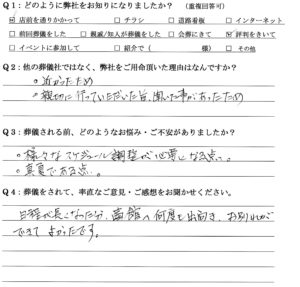 Q1：どのように弊社をお知りになりましたか？　（重複回答可）
☑ 店前を通りかかって　□ チラシ　□ 道路看板　□ インターネット
□ 前回葬儀をした　□ 親戚/知人が葬儀をした　□ 会葬にきて　☑ 評判をきいて
□ イベントに参加して　□ 紹介で（　　　　様）　□ その他
Q2：他の葬儀社ではなく、弊社をご用命頂いた理由はなんですか？
○近かったため
○親切に行っていただいた旨、聞いた事があったため
Q3：葬儀される前、どのようなお悩み・ご不安がありましたか？
○様々なスケジュール調整が心配しなる点。
○真夏である点。
Q4：葬儀をされて、率直なご意見・ご感想をお聞かせください。
日程が長くなったが、何度も出向き、お別れが
できてよかったです。